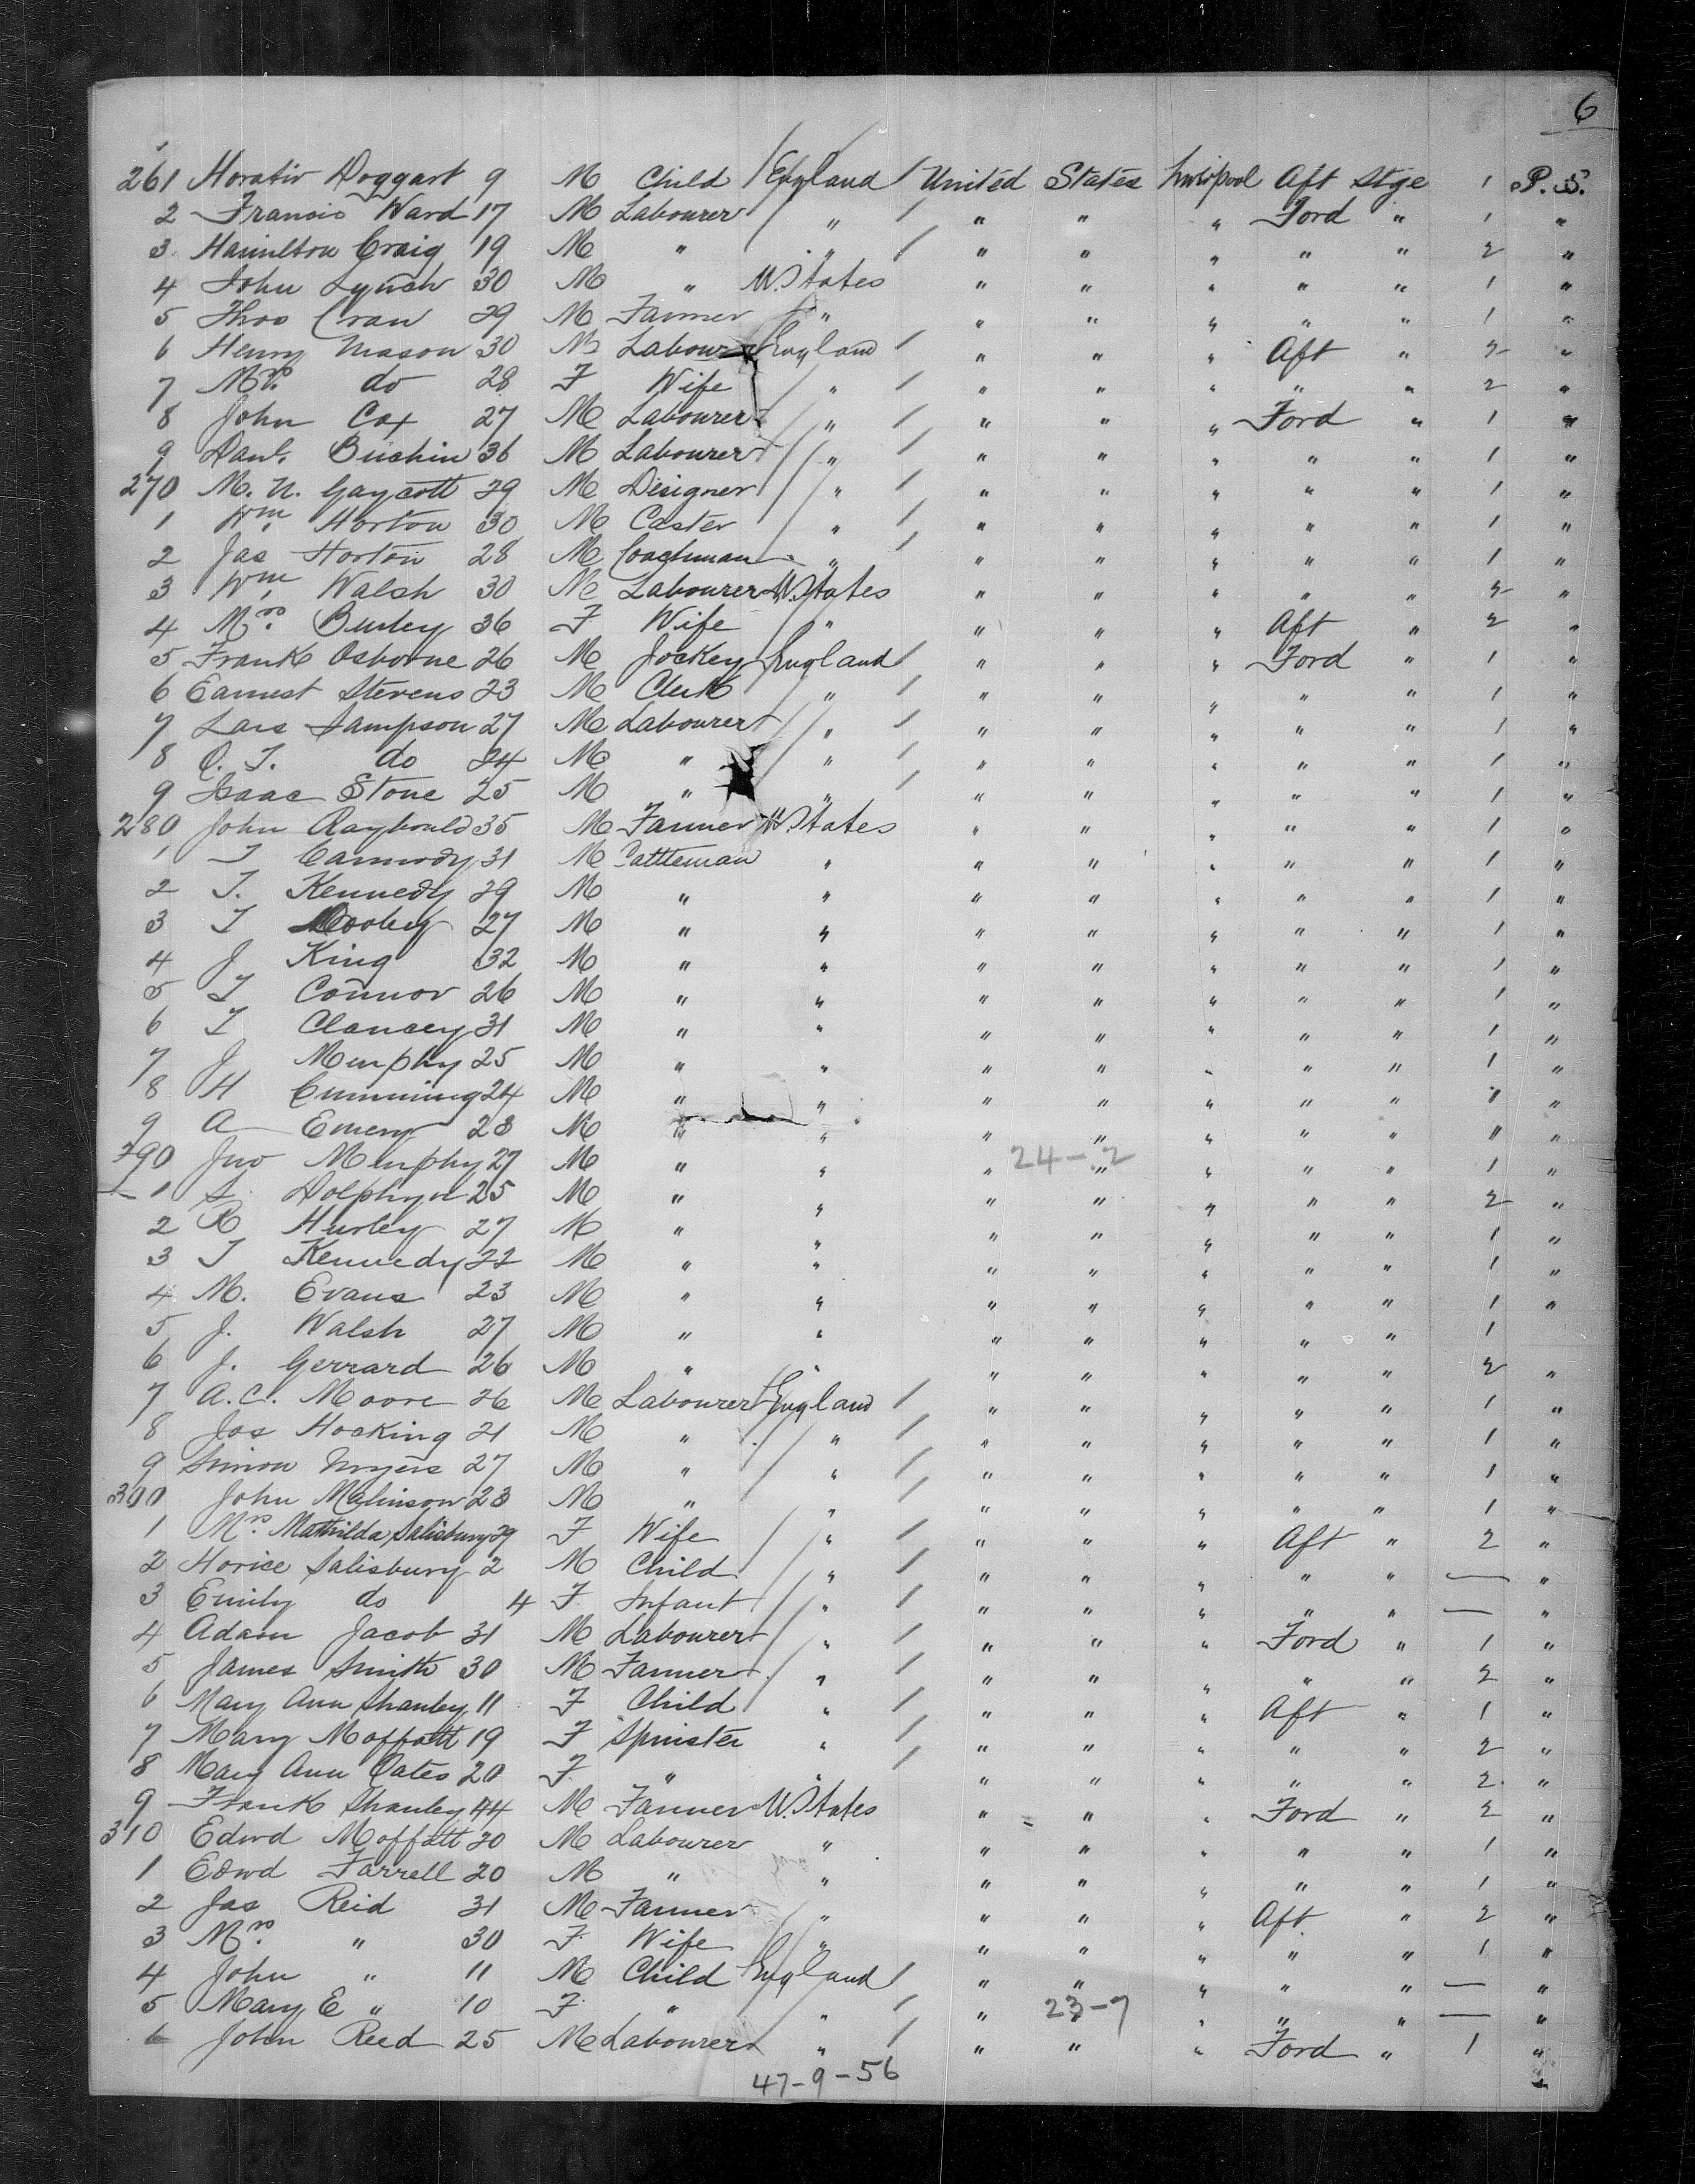 6
261 Horatio Doggart 9 M Child / England / United States Liverpool Aft Stge 1 P.S.
2 Francis Ward 17 M Labourer / " / " " " Ford " 1 "
3 Hamilton Craig 19 M " " / " " " " " 2 "
4 John Lynch 30 M " U.States " " " " " 1 "
5 Thos Cran 29 M Farmer " " " " " " 1 "
6 Henry Mason 30 M Labourer England / " " " Aft " 2 "
7 Mrs. do 28 F Wife / " / " " " " " 2 "
8 John Cox 27 M Labourer / " / " " " Ford " 1 "
9 Danl. 36 M Labourer / " / " " " " " 1 "
270 M. N. Gaycott 29 M Designer / " / " " " " " 1 "
1 Wm. Horton 30 M Caster / " / " " " " " 1 "
2 Jas Horton 28 M Coachman " / " " " " " 1 "
3 Wm. Walsh 30 M Labourer U.States " " " " " 2 "
4 Mrs. Burley 36 F Wife " " " " Aft " 2 "
5 Frank Osborne 26 M Jockey England / " " " Ford " 1 "
6 Earnest Stevens 23 M Clerk / " / " " " " " 1 "
7 Lars Sampson 27 M Labourer / " / " " " " " 1 "
8 O. T. do 24 M " / " / " " " " " 1 "
9 Isaac Stone 25 M " " / " " " " " 1 "
280 John Raybould 35 M Farmer U.States " " " " " 1 "
1 T Carmody 31 M Cattleman " " " " " " 1 "
2 T. Kennedy 29 M " " " " " " " 1 "
3 T Mooley 27 M " " " " " " " 1 "
4 J King 32 M " " " " " " " 1 "
5 T Connor 26 M " " " " " " " 1 "
6 T Clancey 31 M " " " " " " " 1 "
7 J Murphy 25 M " " " " " " " 1 "
8 H Cumming 24 M " " " " " " " 1 "
9 A Emery 28 M " " " " " " " 1 "
290 Jno Murphy 27 M " " " 24-2 " " " " 1 "
1 S. Dolphyn 25 M " " " " " " " 2 "
2 R Hurley 27 M " " " " " " " 1 "
3 T Kennedy 22 M " " " " " " " 1 "
4 M. Evans 23 M " " " " " " " 1 "
5 J. Walsh 27 M " " " " " " " 1
6 J. Gerrard 26 M " " " " " " " 2 "
7 A.C. Moore 26 M Labourer England / " " " " " 1 "
8 Jos Hocking 21 M " / " / " " " " " 1 "
9 Simon Myers 27 M " / " / " " " " " 1 "
300 John Malinson 23 M " " / " " " " " 1 "
1 Mrs. Mathilda Salisbury 29 F Wife / " / " " " Aft " 2 "
2 Horice Salisbury 2 M Child / " / " " " " " — "
3 Emily do 4 F Infant / " / " " " " " — "
4 Adam Jacob 31 M Labourer / " / " " " Ford " 1 "
5 James Smith 30 M Farmer / " / " " " " " 2 "
6 Mary Ann Shanley 11 F Child " / " " " Aft " 1 "
7 Mary Moffatt 19 F Spinster " / " " " " " 2 "
8 Mary Ann Oates 20 F " " / " " " " " 2 "
9 Frank Shanley 44 M Farmer U.States " " " Ford " 2 "
310 Edwd Moffatt 20 M Labourer " " " " " " 1 "
1 Edwd Farrell 20 M " " " " " " " 1 "
2 Jas Reid 31 M Farmer " " " " Aft " 2 "
3 Mrs. " 30 F Wife " " " " " " 1 "
4 John " 11 M Child England / " " " " " — "
5 Mary E " 10 F " " / " 23-7 " " " — "
6 John Reed 25 M Labourer " / " " " Ford " 1 "
47-9-56